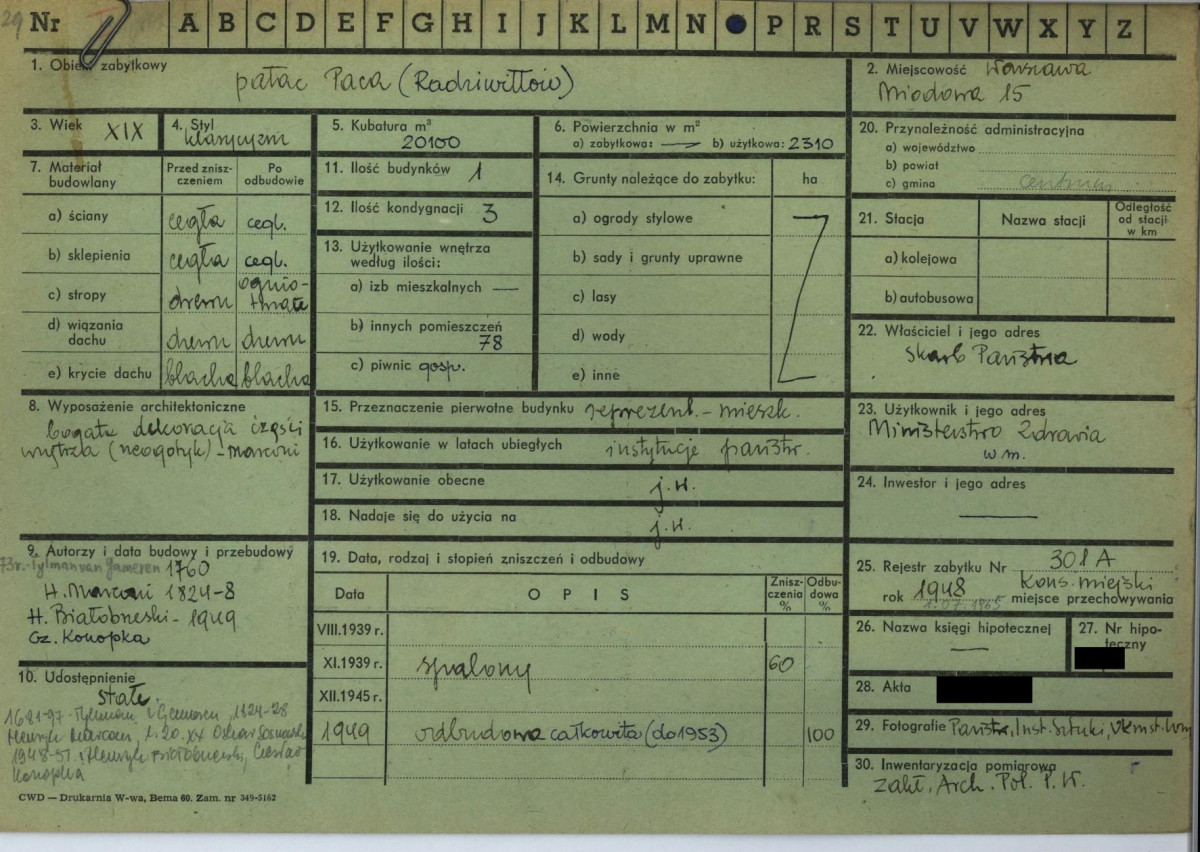 29
Nr A B C D E F G H I J K L M N P R S T U V W X Y Z
1. Obiekt zabytkowy
pałac Paca (Radziwiłłów)
2. Miejscowość Warszawa
Miodowa 15
3. Wiek XIX
4. Styl
klasycyzm
5. Kubatura m³
20100
6. Powierzchnia w m²
a) zabytkowa: — b) użytkowa: 2310
7. Materiał budowlany
Przed zniszczeniem
Po odbudowie
a) ściany cegła cegł.
b) sklepienia cegła cegł.
c) stropy drewn ognio-
trwałe
d) wiązania dachu drewn drewn
e) krycie dachu blacha blacha
8. Wyposażenie architektoniczne
bogata dekoracja części
wnętrza (neogotyk) - Marconi
9. Autorzy i data budowy i przebudowy
Tylman van Gameren 1760
H. Marconi 1824-8
H. Białobrzeski - 1949
Cz. Konopka
10. Udostępnienie
stałe.
1681-97 - Tylman z Gameren, 1824-28
Henryk Marconi, l. 20. XX Oskar Sosnowski
1948-51. Henryk Białobrzeski, Czesław
Konopka
CWD — Drukarnia W-wa, Bema 60. Zam. nr 349-5162
11. Ilość budynków 1
12. Ilość kondygnacji 3
13. Użytkowanie wnętrza
według ilości:
a) izb mieszkalnych —
b) innych pomieszczeń
78
c) piwnic gosp.
14. Grunty należące do zabytku: ha
a) ogrody stylowe
b) sady i grunty uprawne
c) lasy
d) wody
e) inne
15. Przeznaczenie pierwotne budynku reprezent. - mieszk.
16. Użytkowanie w latach ubiegłych instytucje państw.
17. Użytkowanie obecne j.w.
18. Nadaje się do użycia na j.w.
19. Data, rodzaj i stopień zniszczeń i odbudowy
Data OPIS Zniszczenia % Odbudowa %
VIII.1939 r.
XI.1939 r. spalony 60
XII.1945 r.
1949 odbudowa całkowita (do 1953) 100
20. Przynależność administracyjna
a) województwo
b) powiat
c) gmina centrum
21. Stacja Nazwa stacji Odległość od stacji w km
a) kolejowa
b) autobusowa
22. Właściciel i jego adres
Skarb Państwa
23. Użytkownik i jego adres
Ministerstwo Zdrowia
w m.
24. Inwestor i jego adres
—
25. Rejestr zabytku Nr 301 A
rok 1948 Kons. miejski
1.07.1965 miejsce przechowywania
26. Nazwa księgi hipotecznej
—
27. Nr hipoteczny
28. Akta
29. Fotografie Państw. Inst. Sztuki,
30. Inwentaryzacja pomiarowa
Zakł. Arch. Pol. P.W.